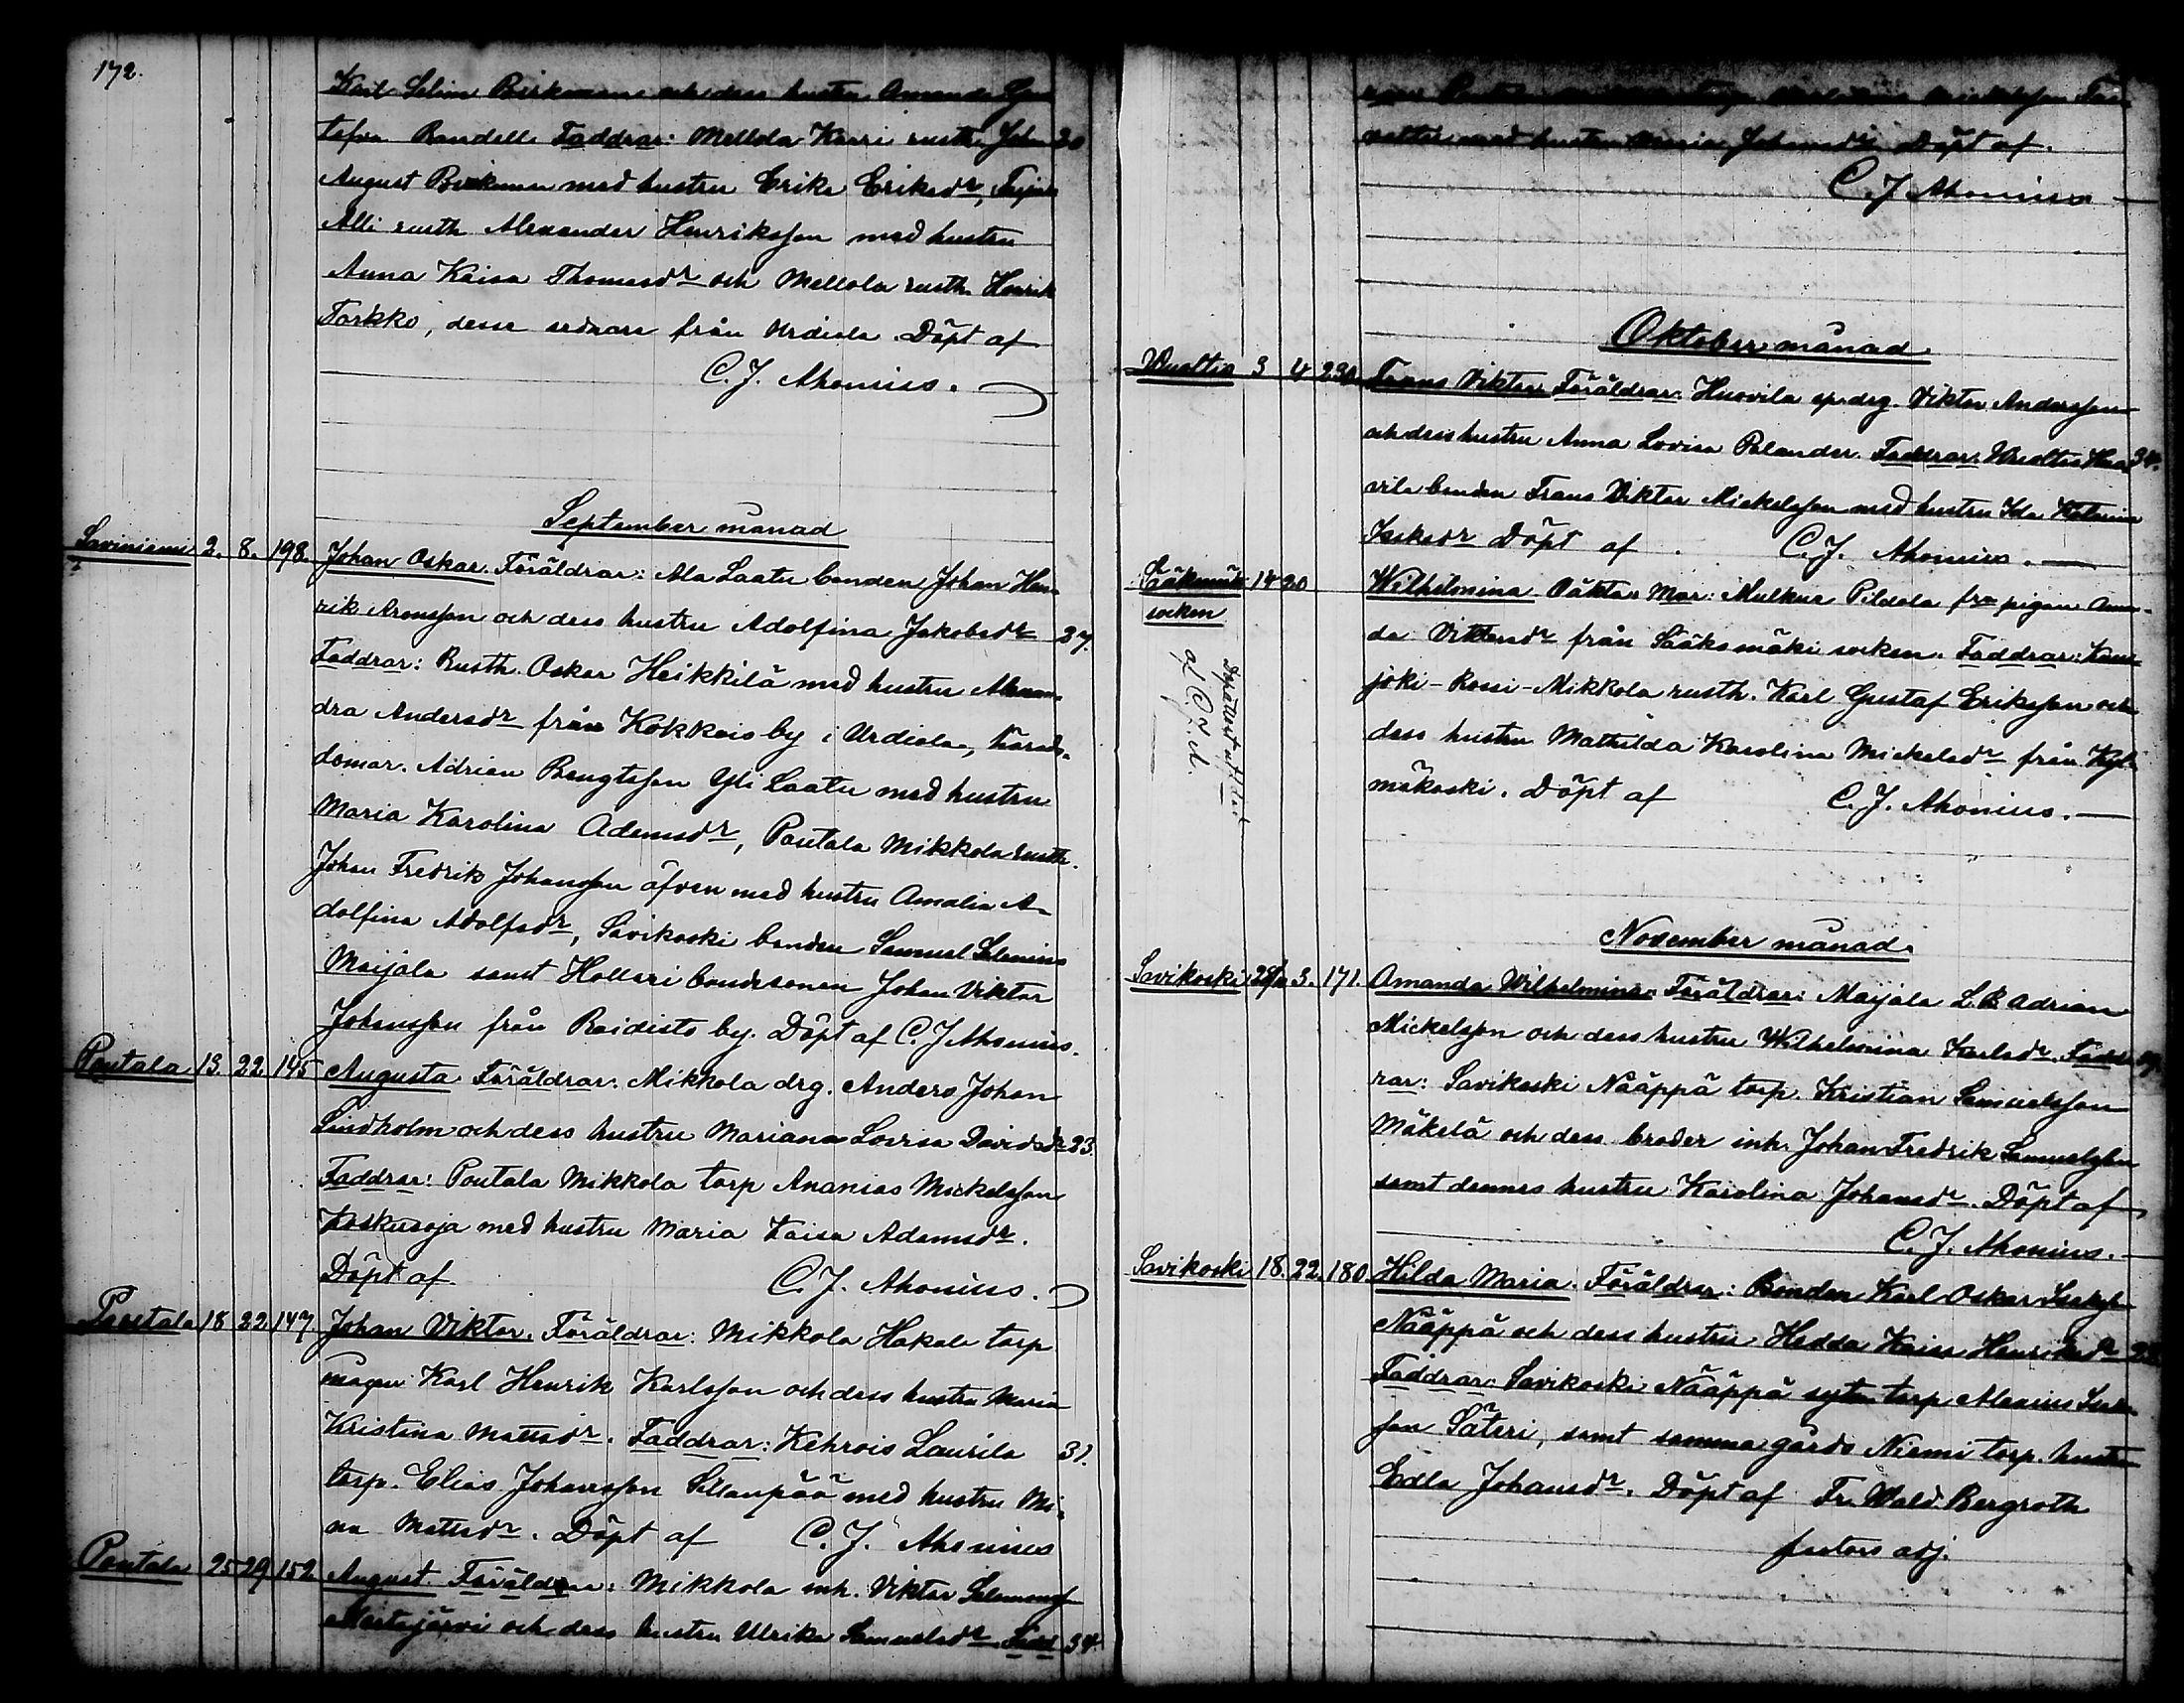 172.
Karl Selim Birkman och dess hustru Amanda Gus
tafva Randell Faddrar: Mellola Karri rusth. Johan 20
August Birkman med hustru Erika Eriksdr,
Alli rusth Alexander Henriksson med hustru
Anna Kaisa Thomasdr och Mellola rusth. Henrik
Torkko, desse sednare från Urdiala. Döpt af
C. J. Ahonius.
September månad
Saviniemi 2. 8. 198. Johan Oskar. Föräldrar: Ala Laatu bonden Johan Hen-
rik Aronsson och dess hustru Adolfina Jakobsdr 37.
Faddrar: Rusth. Oskar Heikkilä med hustru Alexan-
dra Andersdr från Kokkois by i Urdiala, härads-
domar. Adrian Bengtsson Yli Laatu med hustru
Maria Karolina Adamsdr, Pontala Mikkola rusth.
Johan Fredrik Johansson äfven med hustru Amalia A-
dolfina Adolfsdr, Savikoski bonden Samuel Selenius
Maijala samt Hollari bondesonen Johan Viktor
Johansson från Raidisto by. Döpt af C. J. Ahonius.
Pontala 13. 22. 145 Augusta Föräldrar: Mikkola drg. Anders Johan
Lindholm och dess hustru Mariana Lovisa Davidsdr 23.
Faddrar: Pontala Mikkola torp Ananias Mickelsson
Koskuoja med hustru Maria Kaisa Adamsdr.
Döpt af C. J. Ahonius.
Pontala 18 22. 147. Johan Viktor. Föräldrar: Mikkola Hakala torp
magen Karl Henrik Karlsson och dess hustru Maria
Kristina Mattsdr. Faddrar: Kehrois Laurila 31.
torp. Elias Johansson Sillanpää med hustru Mi-
na Mattsdr. Döpt af C. J. Ahonius
Pontala 25 29 152 August Föräldrar: Mikkola inh. Viktor Salomonss
Mertajärvi och dess hustru Ulrika Samuelsdr Fadd 34.
vattu med hustru Maria Johansdr. Döpt af
C. J. Ahonius
Oktober månad
Vuoltis 3 4 230 Frans Viktor Föräldrar: Huovila sp.drg. Viktor Andersson
och dess hustru Anna Lovisa Palander. Faddrar: Vuoltis Huo 34.
vila bonden Frans Viktor Mickelsson med hustru Ida Katarina
Isaksdr Döpt af C. J. Ahonius.
Sääksmäki 14 20 Wilhelmina Oäkta. Mor: Mulkur Pildola fra pigan Aman-
socken
da Viktorsdr från Sääksmäki socken. Faddrar:
joki-Rossi-Mikkola rusth. Karl Gustaf Eriksson och
dess hustru Mathilda Karolina Mickelsdr från Kyl-
mäkoski. Döpt af C. J. Ahonius.
af C. J. A.
November månad.
Savikoski 3. 171. Amanda Wilhelmina. Föräldrar: Maijala L.B. Adrian
Mickelsson och dess hustru Wilhelmina Karlsdr. Fadd
rar: Savikoski Nääppä torp. Kristian Samuelsson
Mäkelä och dess broder inh. Johan Fredrik Samuelsson
samt dennes hustru Karolina Johansdr. Döpt af
C. J. Ahonius.
Savikoski 18. 22. 180. Hilda Maria. Föräldrar: Bonden Karl Oskar Isaksson
Nääppä och dess hustru Hedda Kaisa Henriksdr
Faddrar: Savikoski Nääppä sytn. torp. Alexius Isaks
son Säteri, samt samma gårds Niemi torp. hustru
Edla Johansdr. Döpt af Fr. Wald. Bergroth
pastors adj.